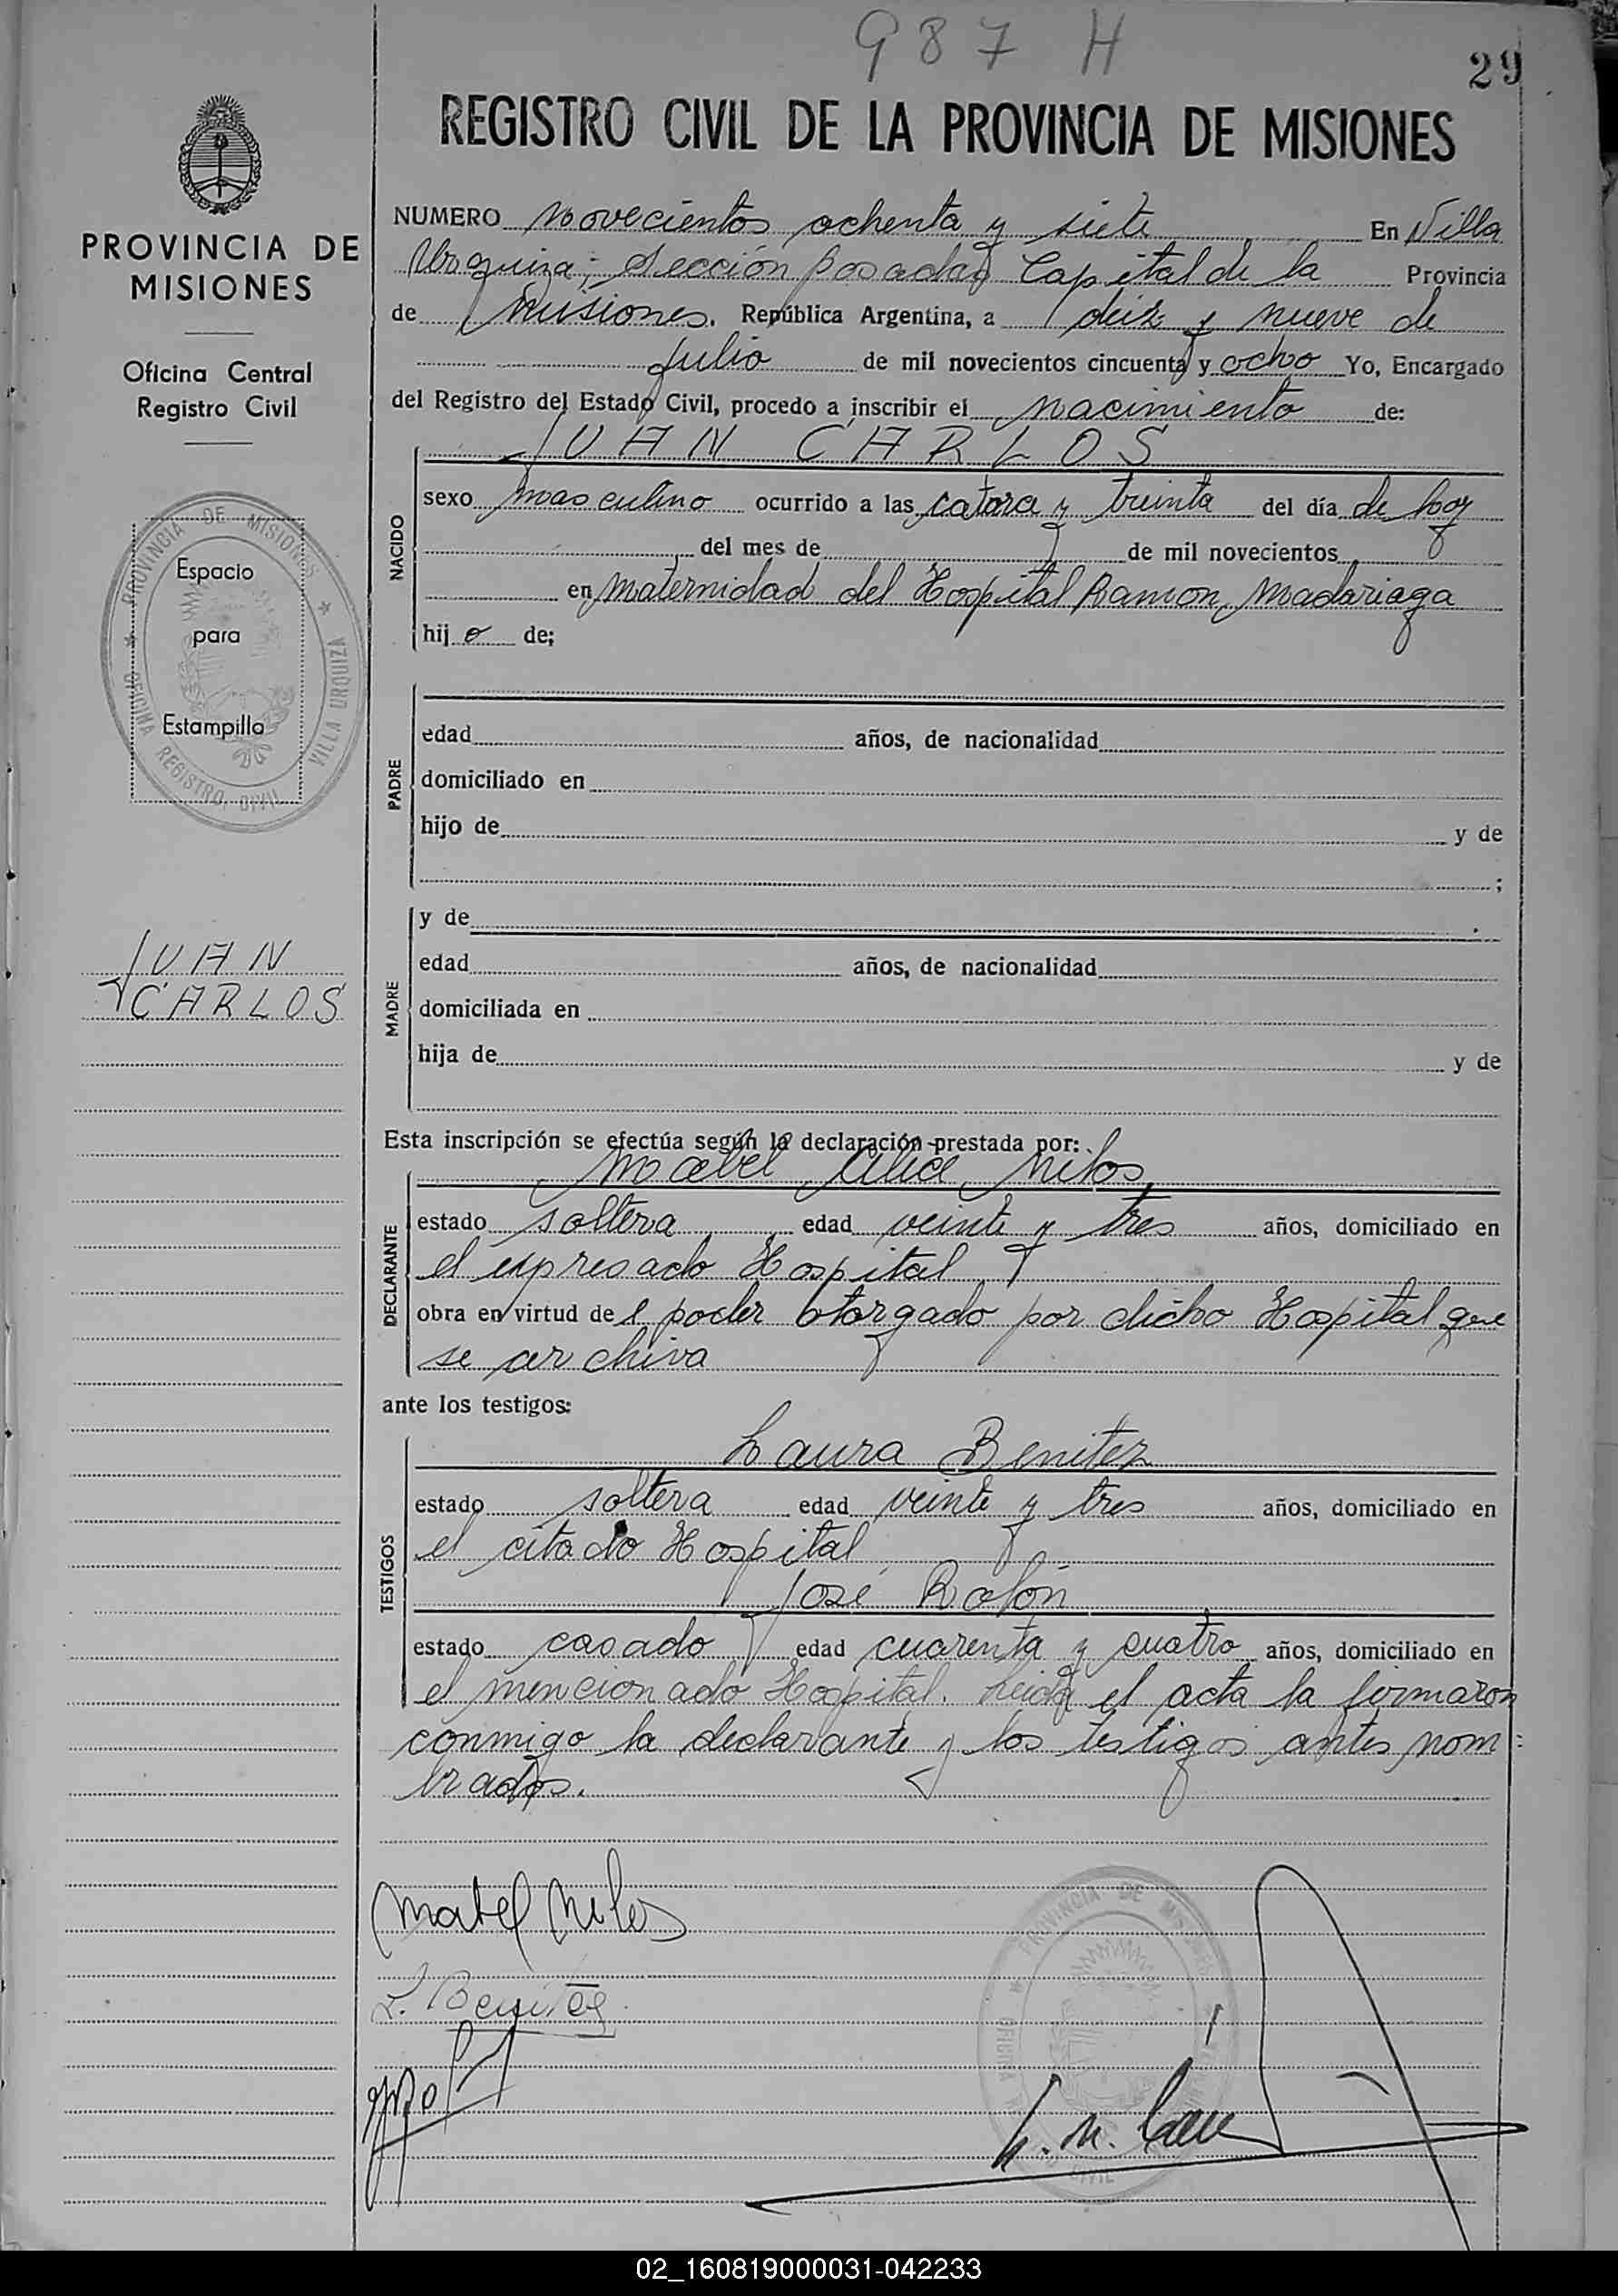 987 H
29
REGISTRO CIVIL DE LA PROVINCIA DE MISIONES
PROVINCIA DE
MISIONES
Oficina Central
Registro Civil
PROVINCIA DE MISIONES * VILLA URQUIZA
OFICINA REGISTRO CIVIL *
Espacio
para
Estampilla
JUAN
CARLOS
NUMERO novecientos ochenta y siete En Villa
Urquiza; Sección Posadas Capital de la Provincia
de Misiones. República Argentina, a deiz y nueve de
julio de mil novecientos cincuenta y ocho Yo, Encargado
del Registro del Estado Civil, procedo a inscribir el nacimiento de:
NACIDO
JUAN CARLOS
sexo masculino ocurrido a las catorce y treinta del día de hoy
del mes de de mil novecientos
en maternidad del Hospital Ramon Madariaga
hij o de;
PADRE
edad años, de nacionalidad
domiciliado en
hijo de y de
;
MADRE
y de
edad años, de nacionalidad
domiciliada en
hija de y de
Esta inscripción se efectúa según la declaración prestada por:
DECLARANTE
Mabel Alice Milos
estado soltera edad veinte y tres años, domiciliado en
el expresado Hospital
obra en virtud de l poder otorgado por dicho Hospital que
se archiva
ante los testigos:
TESTIGOS
Laura Benitez
estado soltera edad veinte y tres años, domiciliado en
el citado Hospital
José Rolón
estado casado edad cuarenta y cuatro años, domiciliado en
el mencionado Hospital. Leida el acta la firmaron
conmigo la declarante y los testigos antes nom
brados.
Mabel Milos
L. Benitez
PROVINCIA DE MISIONES
OFICINA
CIVIL
02_160819000031-042233